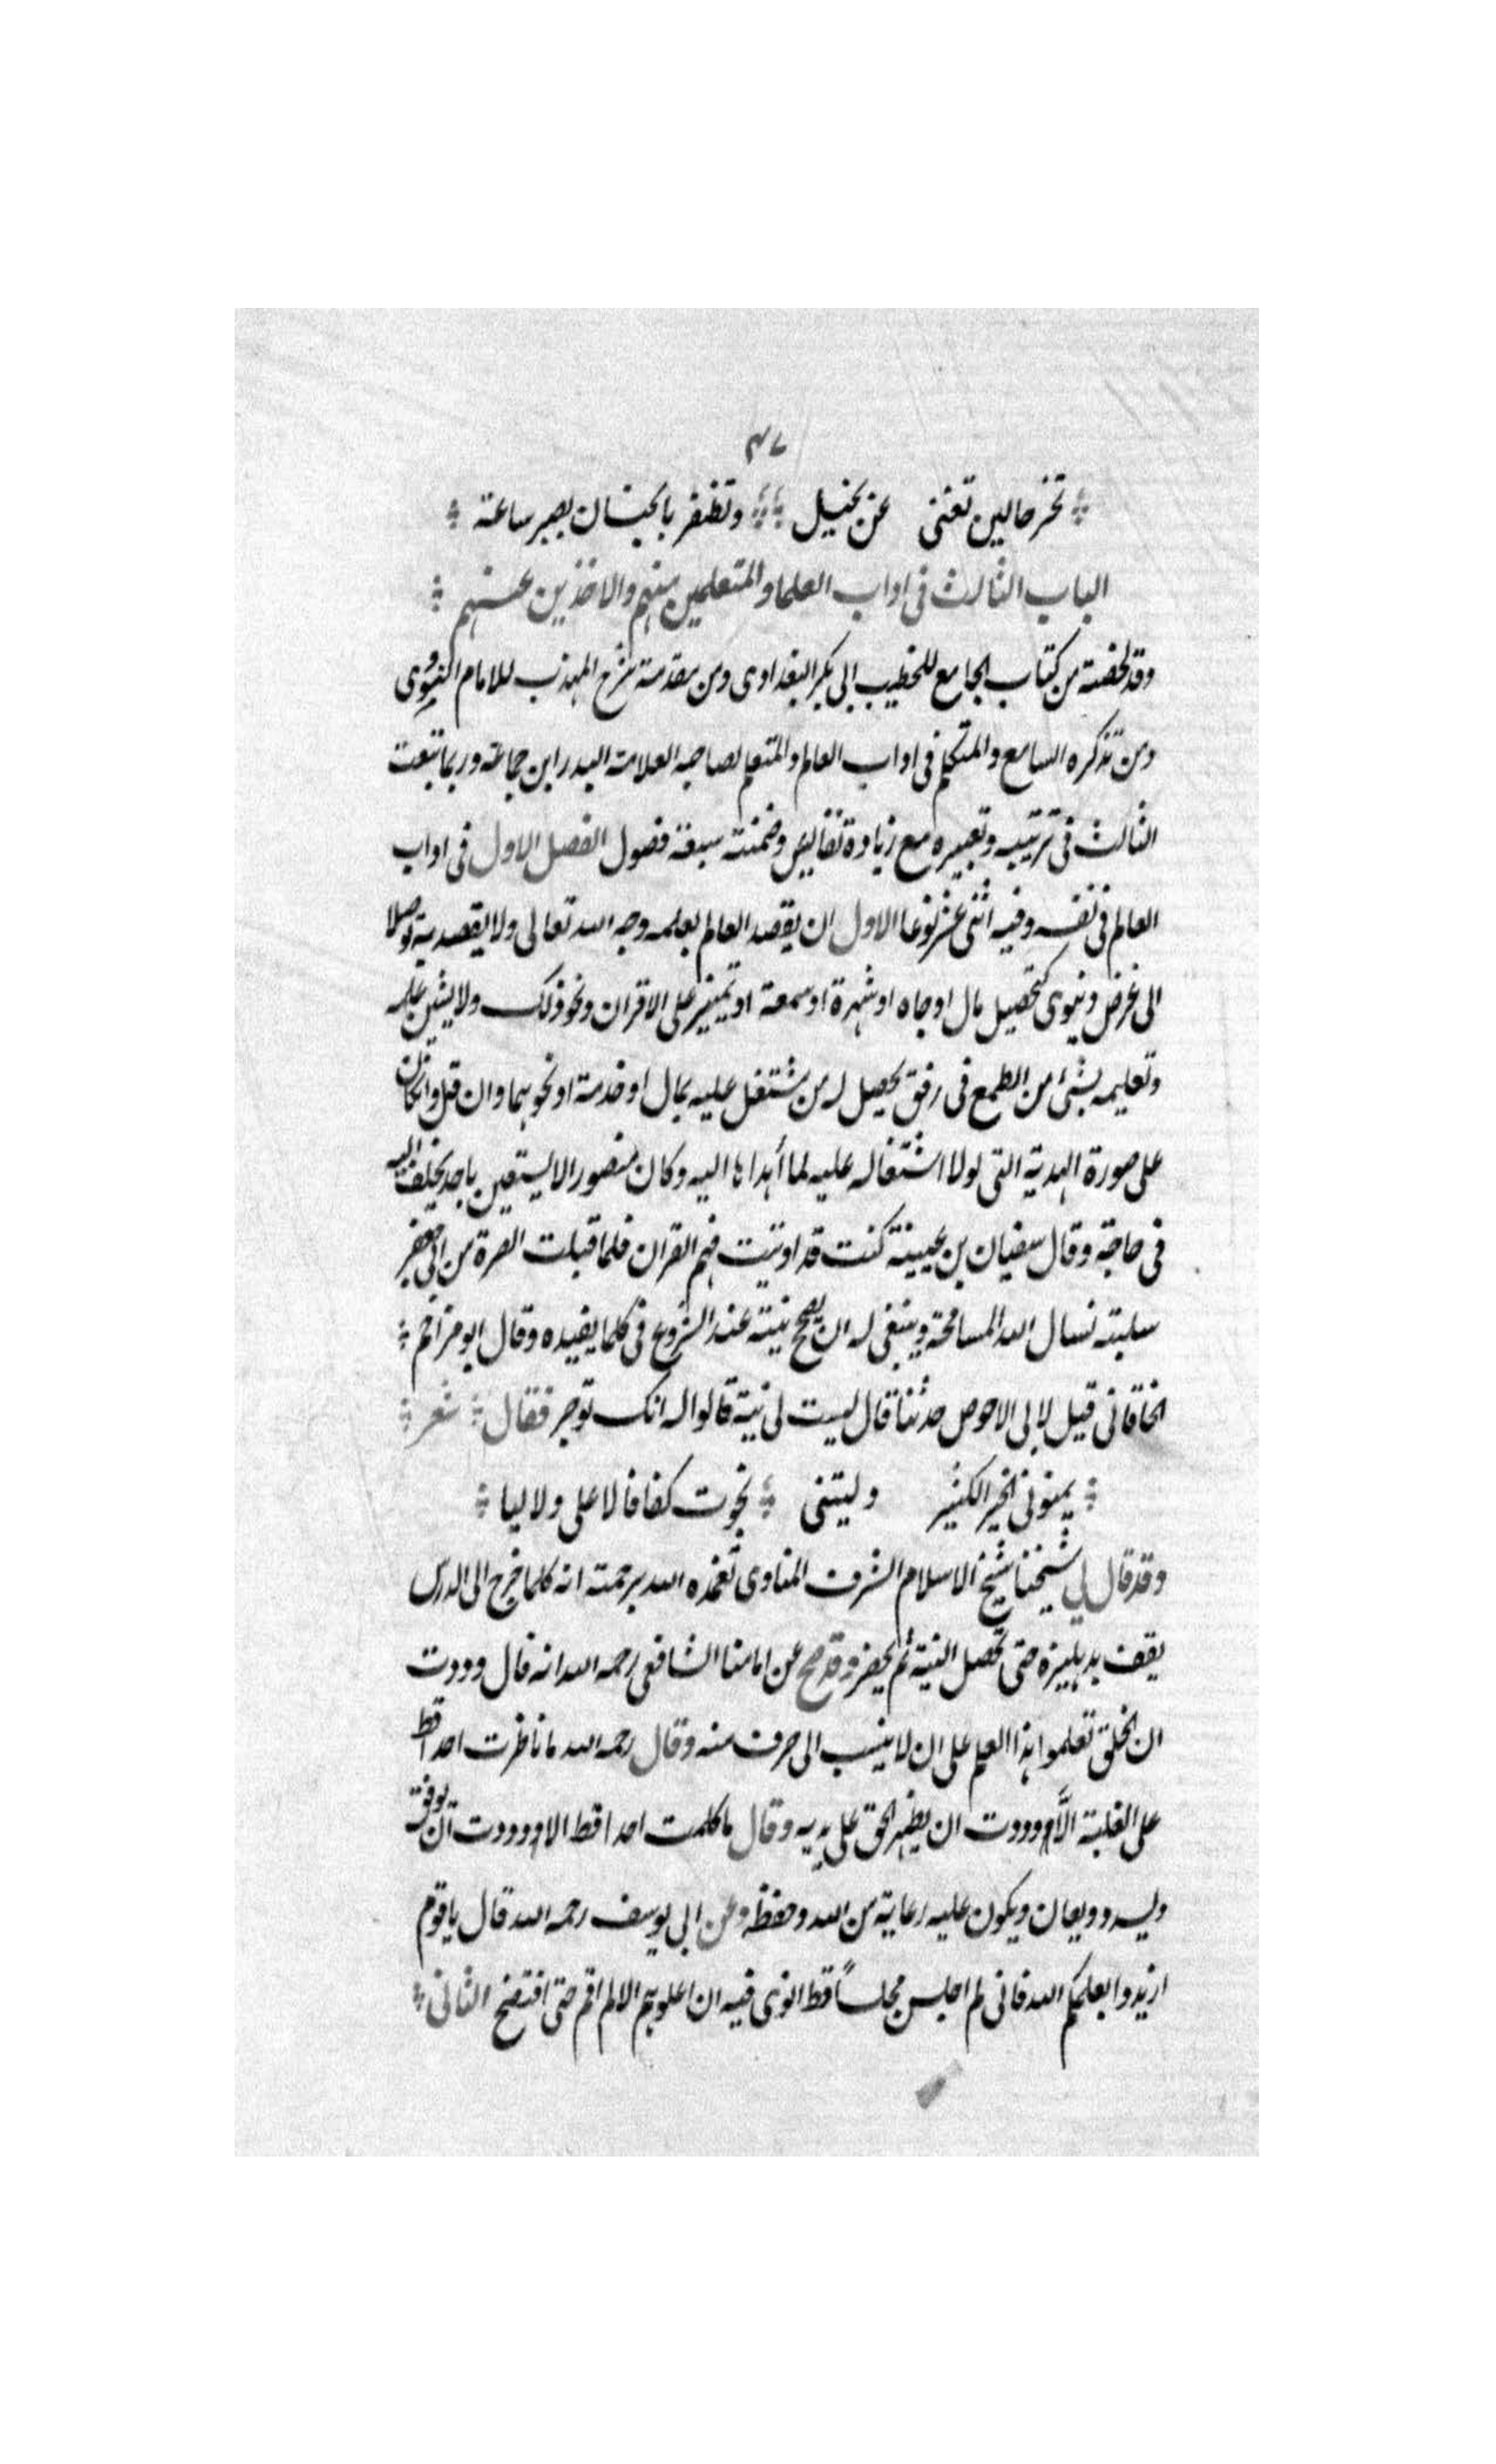 ٤٧
تحز حالين تغنى عن بخيل وتظفر بالجنان بصبر ساعة
الباب الثالث فى اداب العلما والمتعلمين منهم والاخذين عنهم
وقد لخصته من كتاب الجامع للخطيب ابى بكر البغدادى ومن مقدمة شرح المهذب للامام النووى
ومن تذكره السامع والمتكلم فى اداب العالم والمتعلم لصاحبه العلامة البدر ابن جماعة وربما تبعت
الثالث فى ترتيبه وتعبيره مع زيادة نفايس وضمنته سبعة فصول الفصل الاول فى اداب
العالم فى نفسه وفيه اثنى عشر نوعا الاول ان يقصد العالم بعلمه وجه الله تعالى ولا يقصد به توصلا
الى غرض دنيوى كتحصيل مال او جاه او شهرة او سمعة او تميز على الاقران ونحو ذلك ولا يشين علمه
وتعليمه بشئ من الطمع فى رفق يحصل له من مشتغل عليه بمال او خدمة او نحوهما وان قل وان كان
على صورة الهدية التى لولا اشتغاله عليه لما أهداها اليه وكان منصور لا يستعين باحد يختلف اليه
فى حاجة وقال سفيان بن عيينة كنت قد اوتيت فهم القران فلما قبلت الصرة من ابى جعفر
سلبته نسال الله المسامحة وينبغى له ان يصحح نيته عند الشروع فى كلما يفيده وقال ابو مزاحم
الخاقانى قيل لابى الاحوص حدثنا قال ليست لى نية قالوا له انك توجر فقال شعر
يمنونى الخير الكثير وليتنى نجوت كفافا لا على ولا ليا
وقد قال لي شيخنا شيخ الاسلام الشرف المناوى تغمده الله برحمته انه كلما خرج الى الدرس
يقف بدهليزه حتى تحصل النية ثم يحضر وقد صح عن امامنا الشافعى رحمه الله انه قال وددت
ان الخلق تعلموا هذا العلم على ان لا ينسب الى حرف منه وقال رحمه الله ما ناظرت احدا قط
على الغلبة الَّا وددت ان يظهر الحق على يديه وقال ما كلمت احدا قط الا وددت ان يوفق
ويسدد ويعان ويكون عليه رعاية من الله وحفظه وعن ابى يوسف رحمه الله قال يا قوم
اريدوا بعلمكم الله فانى لم اجلس مجلساً قط انوى فيه ان اعلوهم الا لم اقم حتى افتضح الثانى